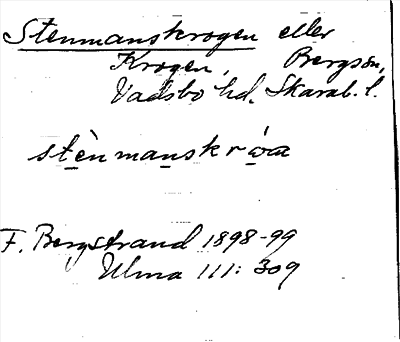 Stenmanskrogen eller
Krogen, Bergsön,
Vadsbo hd. Skarab. l.
stènmanskrωa
F. Bergstrand 1898-99
Ulma 111: 309